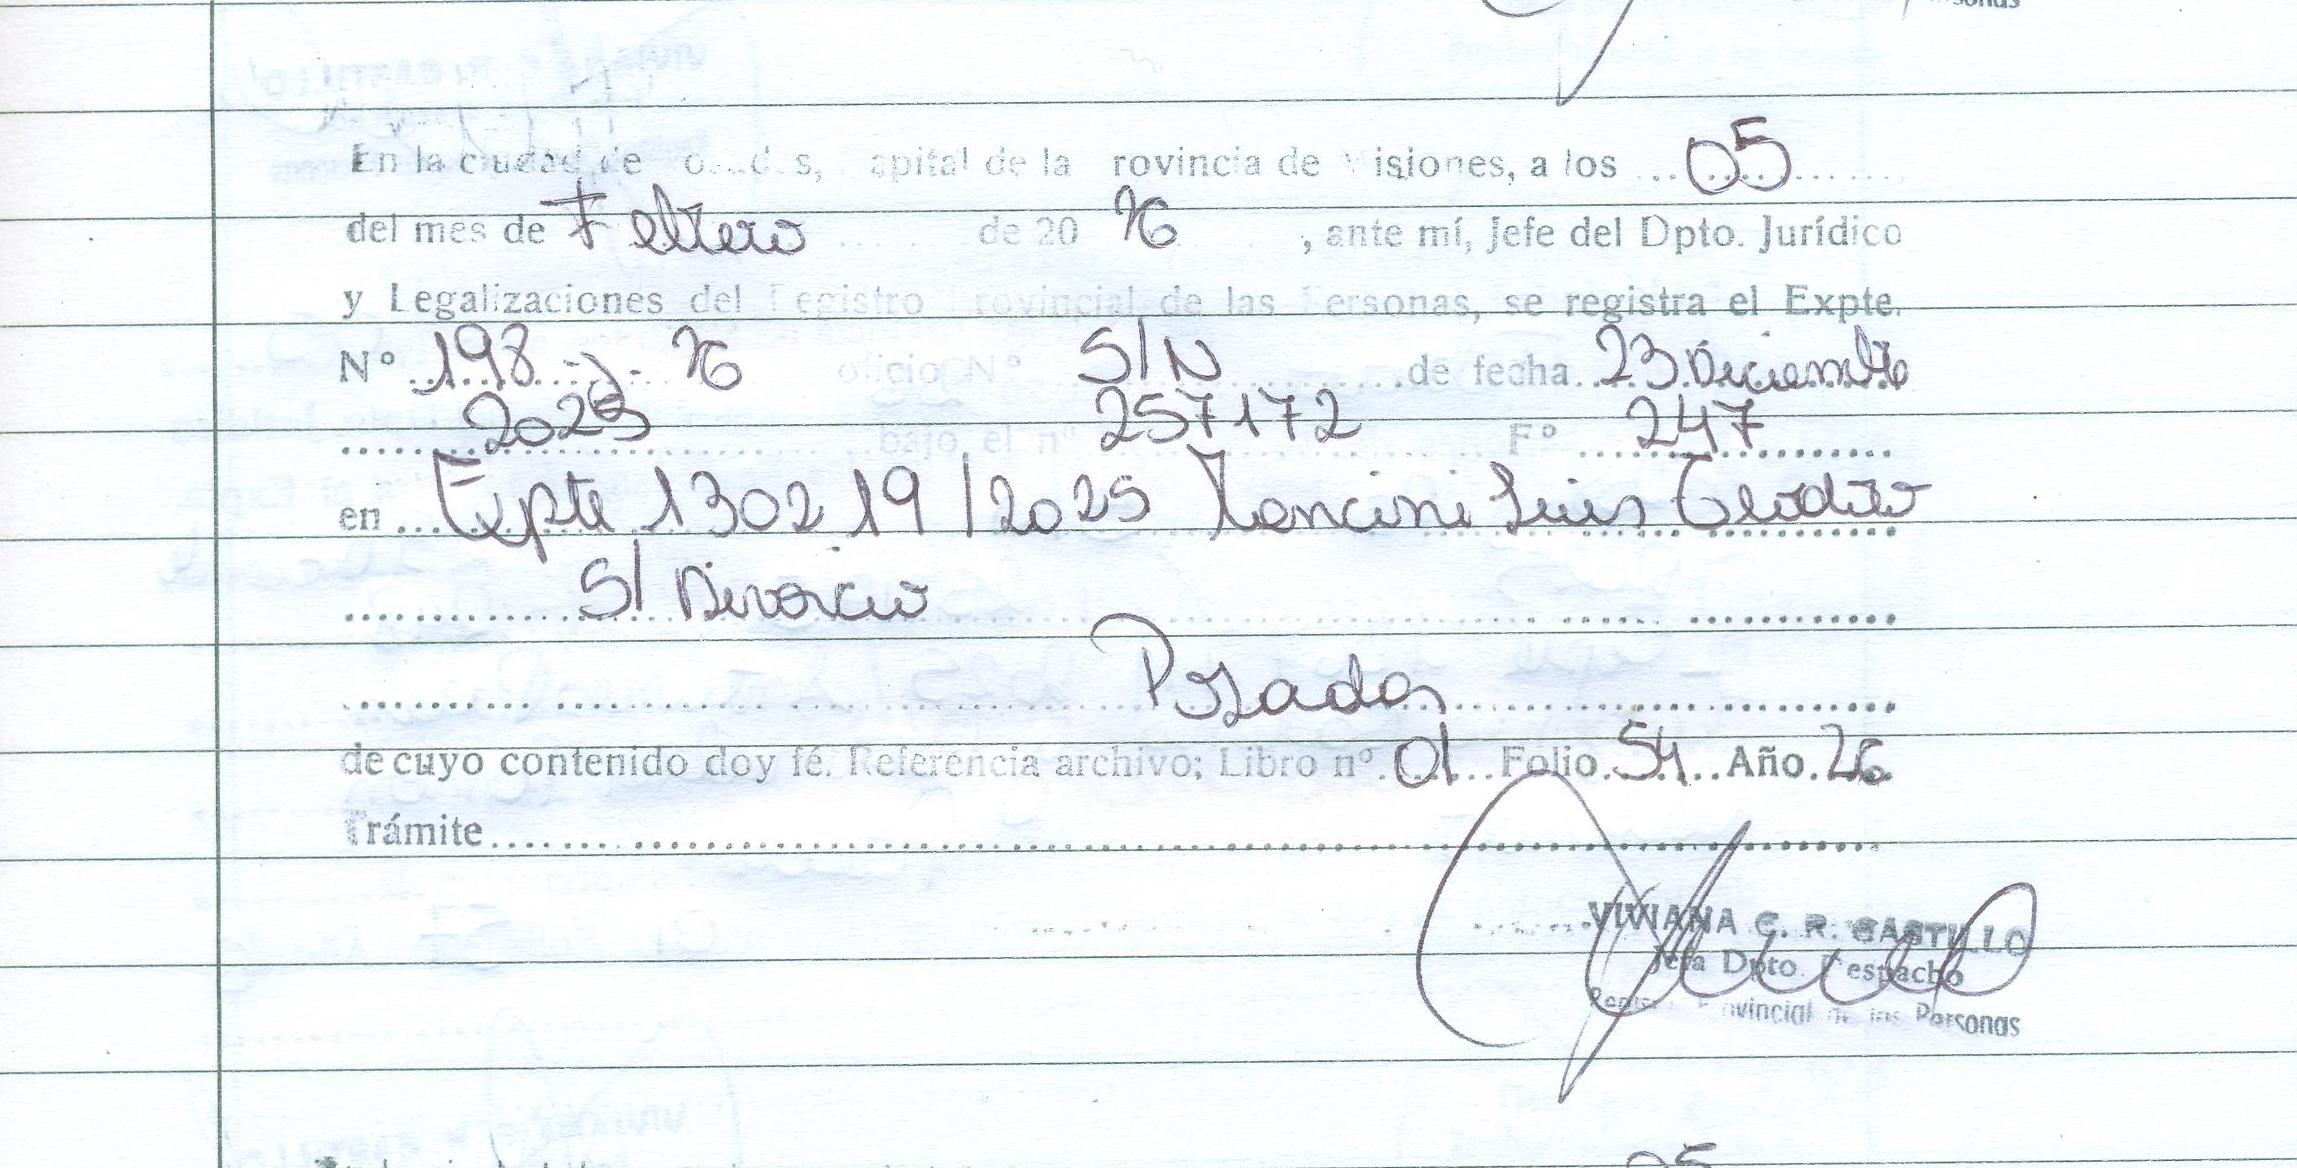 En la ciudad de Posadas, Capital de la Provincia de Misiones, a los 05
del mes de Febrero de 20 26, ante mí, Jefe del Dpto. Jurídico
y Legalizaciones del Registro Provincial de las Personas, se registra el Expte.
Nº 198 -J- 26 oficio Nº S/N de fecha 23 Diciembre
2025 bajo el nº 257172 Fº 247
en Expte 130219/2025 Mancini Luis Teodoro
S/ Divorcio
Posadas
de cuyo contenido doy fé. Referencia archivo; Libro nº 01 Folio 54 Año 26
Trámite
VIVIANA C. R. CASTILLO
Jefa Dpto. Despacho
Registro Provincial de las Personas